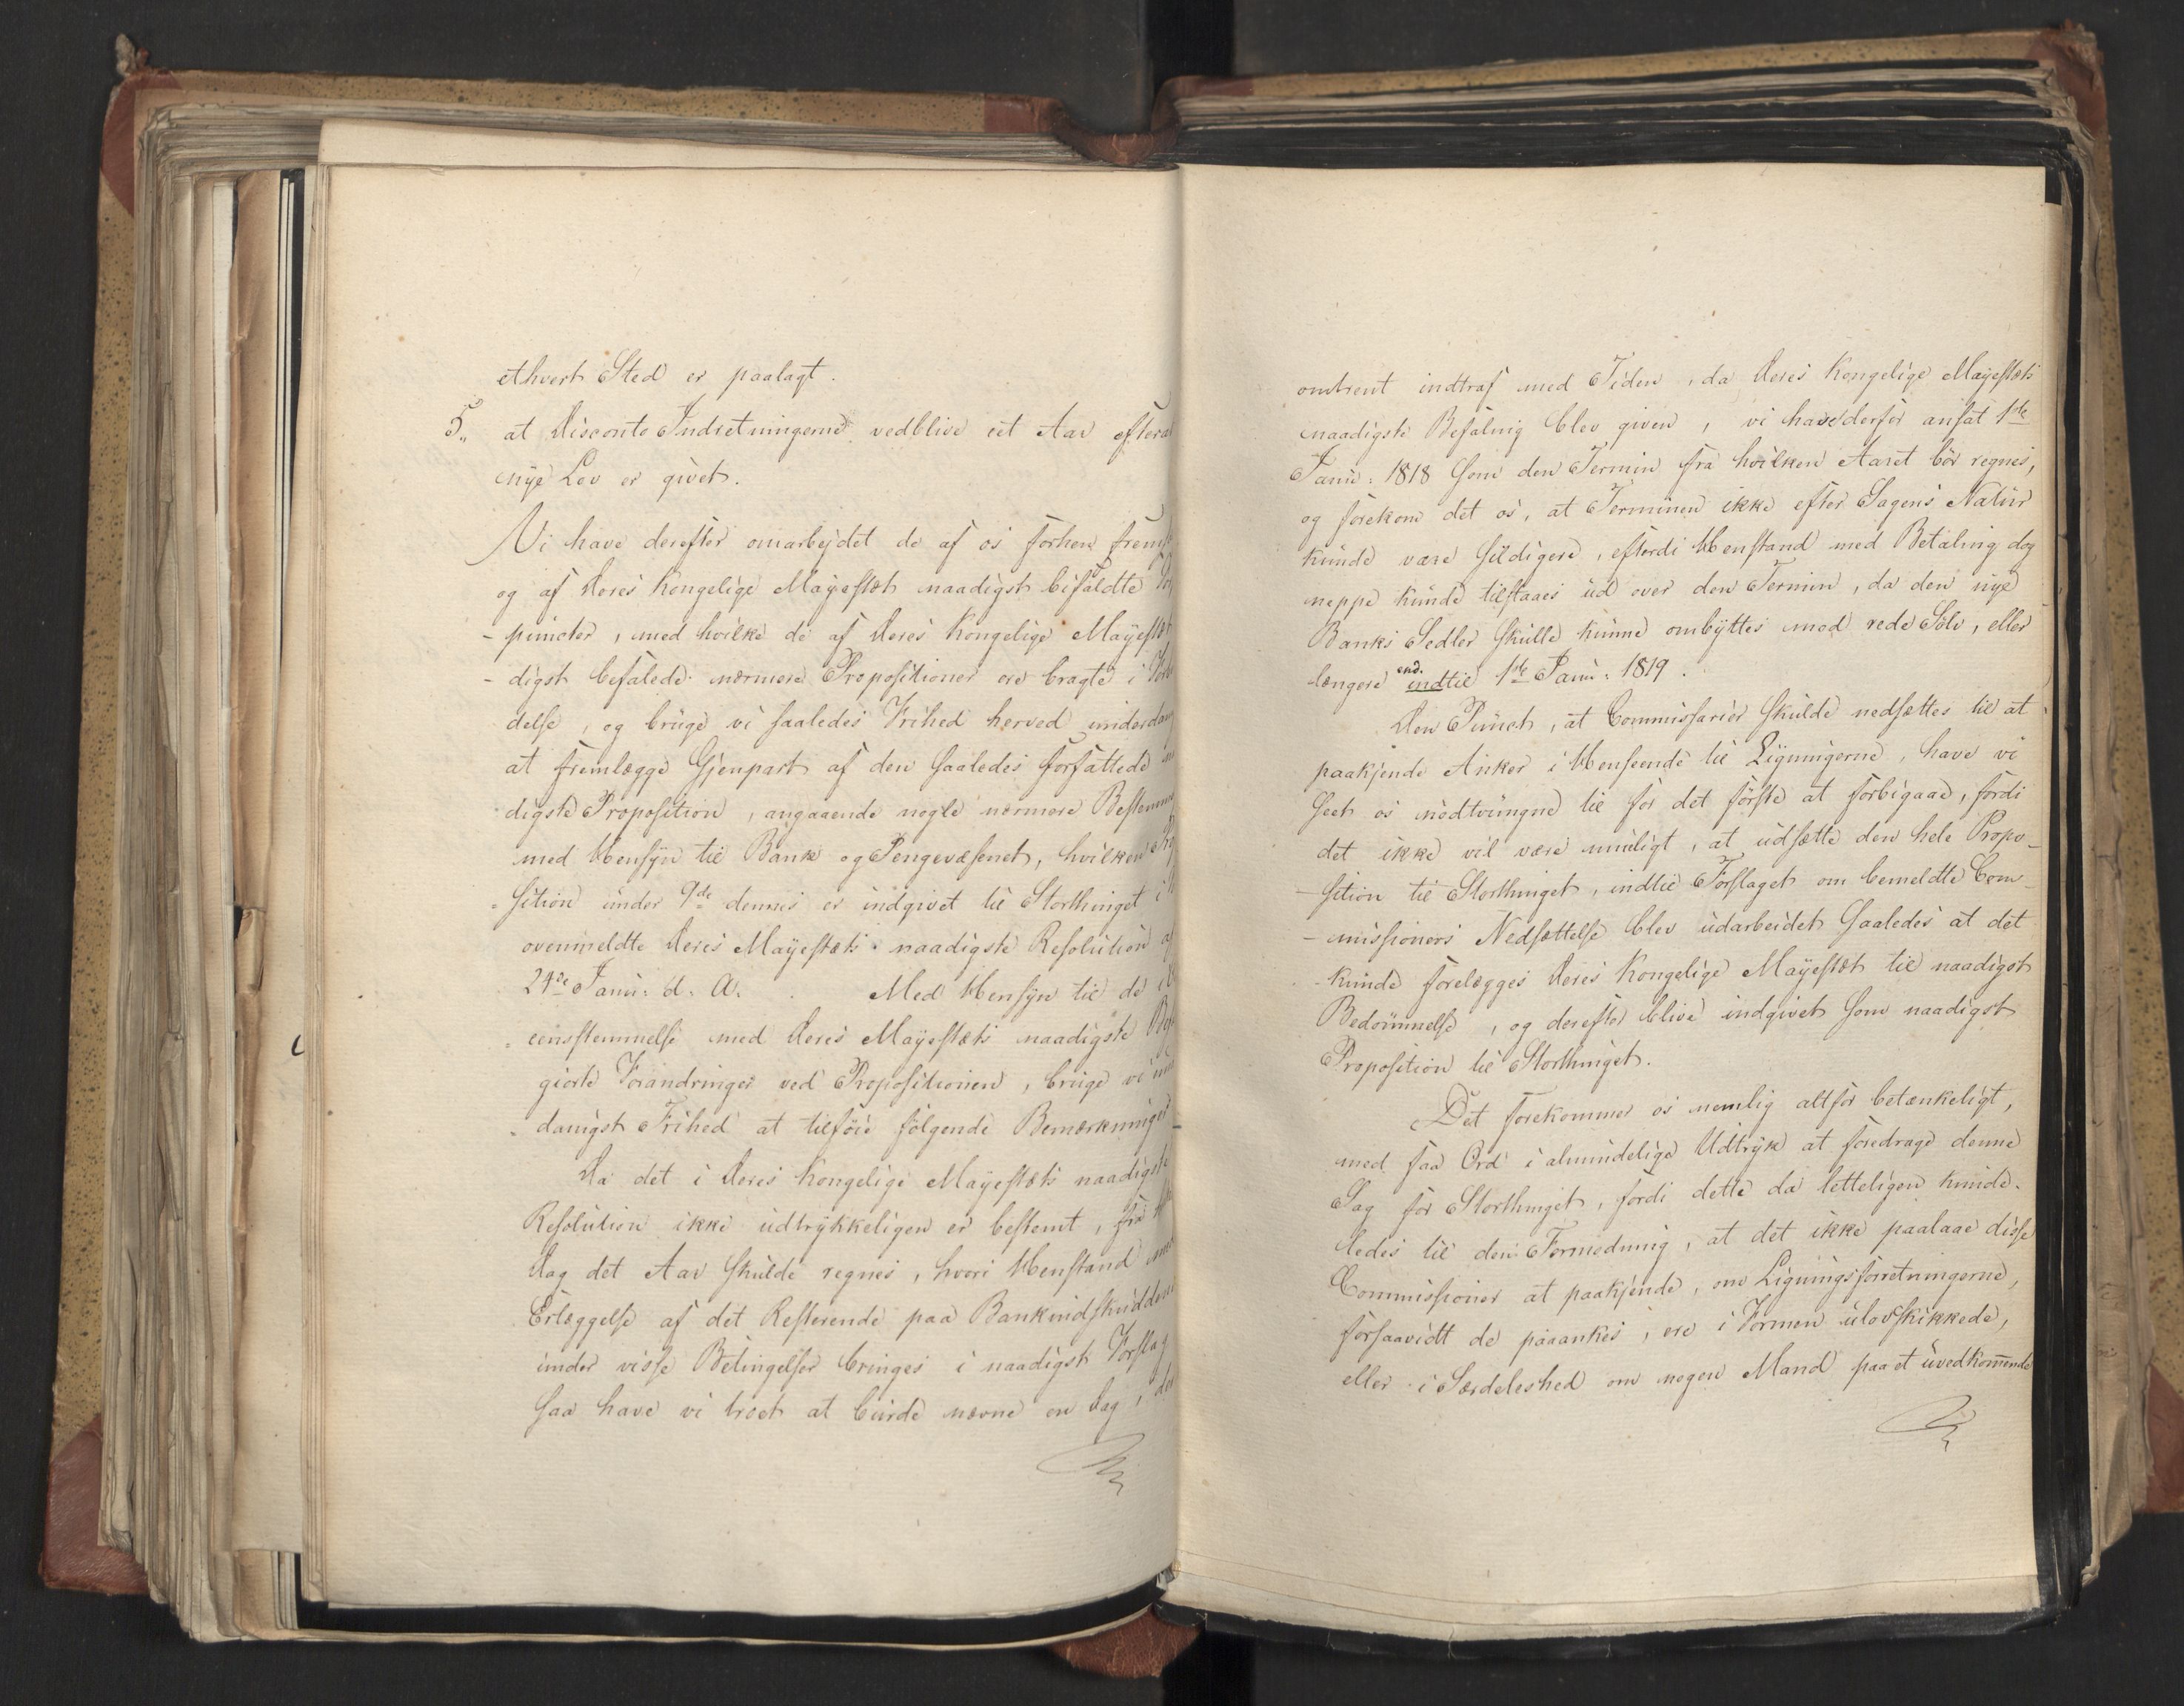 ethvert Sted er paalagt.
5„ at Disconto Indretningerne vedblive eet Aar efterat
nye Lov er givet.
Vi have derefter omarbejdet de af os forhen frem
og af Deres Kongelige Mayestæt naadigst bifaldte
-puncter, med hvilke de af Deres Kongelige Mayestæt
-digst befalede nærmere Propositioner ere bragte i
delse, og bruge vi saaledes Frihed herved underdan
at fremlægge Gjenpart af den saaledes forfattede
digste Proposition, angaaende nogle nærmere Bestemm
med Hensyn til Bank og Pengevæsenet, hvilken
-sition under 9de dennes er indgivet til Storthinget i
ovenmeldte Deres Mayestæts naadigste Resolution af
24de Janu: d. A. Med Hensyn til de i
eensstemmelse med Deres Mayestæts naadigste
giorte Forandringer ved Propositionen, bruge vi un
danigst Frihed at tilføie følgende Bemærkninger
Da det i Deres Kongelige Mayestæts naadigste
Resolution ikke udtrykkeligen er bestemt, fra
Dag det Aar skulde regnes, hvori Henstand med
Erlæggelse af det Resterende paa Bankindskuddene
under visse Betingelser bringes i naadigst Forslag
saa have vi troet at burde nævne en Dag, der
omtrent indtraf med Tiden, da Deres Kongelige Mayestæts
naadigste Befaling blev given, vi have derfor ansat 1ste
Janu: 1818 som den Termin fra hvilken Aaret bør regnes,
og forekom det os, at Terminen ikke efter Sagens Natur
kunde være sildigere, efterdi Henstand med Betaling dog
neppe kunde tilstaaes ud over den Termin, da den nye
Banks Sedler skulle kunne ombyttes mod rede Sølv, eller
længere end. indtil 1ste Janu: 1819.
Den Punct, at Commissarier skulde nedsættes til at
paakjende Anker i Henseende til Ligningerne, have vi
seet os nødtvungne til for det første at forbigaae, fordi
det ikke vil være muuligt, at udsætte den hele Propo-
-sition til Storthinget, indtil Forslaget om bemeldte Com-
-missioners Nedsættelse blev udarbeidet saaledes at det
kunde forelægges Deres Kongelige Mayestæt til naadigst
Bedømmelse, og derefter blive indgivet som naadigst
Proposition til Storthinget.
Det forekommer os nemlig altfor betænkeligt,
med faa Ord i almindelige Udtryk at foredrage denne
Sag for Storthinget, fordi dette da letteligen kunde
ledes til den Formodning, at det ikke paalaae disse
Commissioner at paakjende, om Ligningsforretningerne,
forsaavidt de paaankes, ere i Formen ulovskikkede,
eller i Særdeleshed om nogen Mand paa et uvedkommende